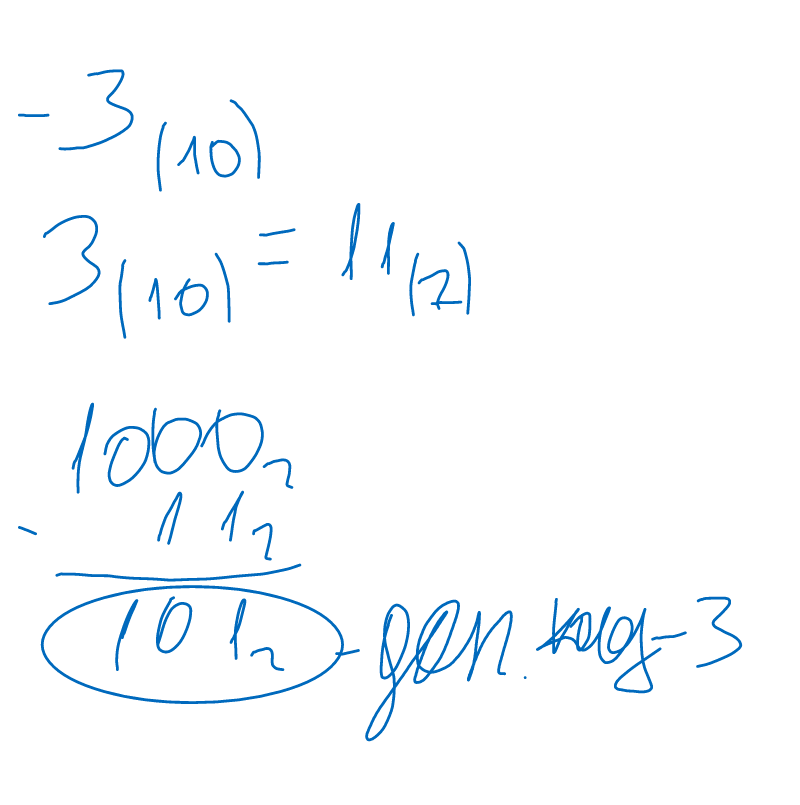 -3(10)
3(10) = 11(2)
1000₂
- 11₂
101₂ - доп. код -3